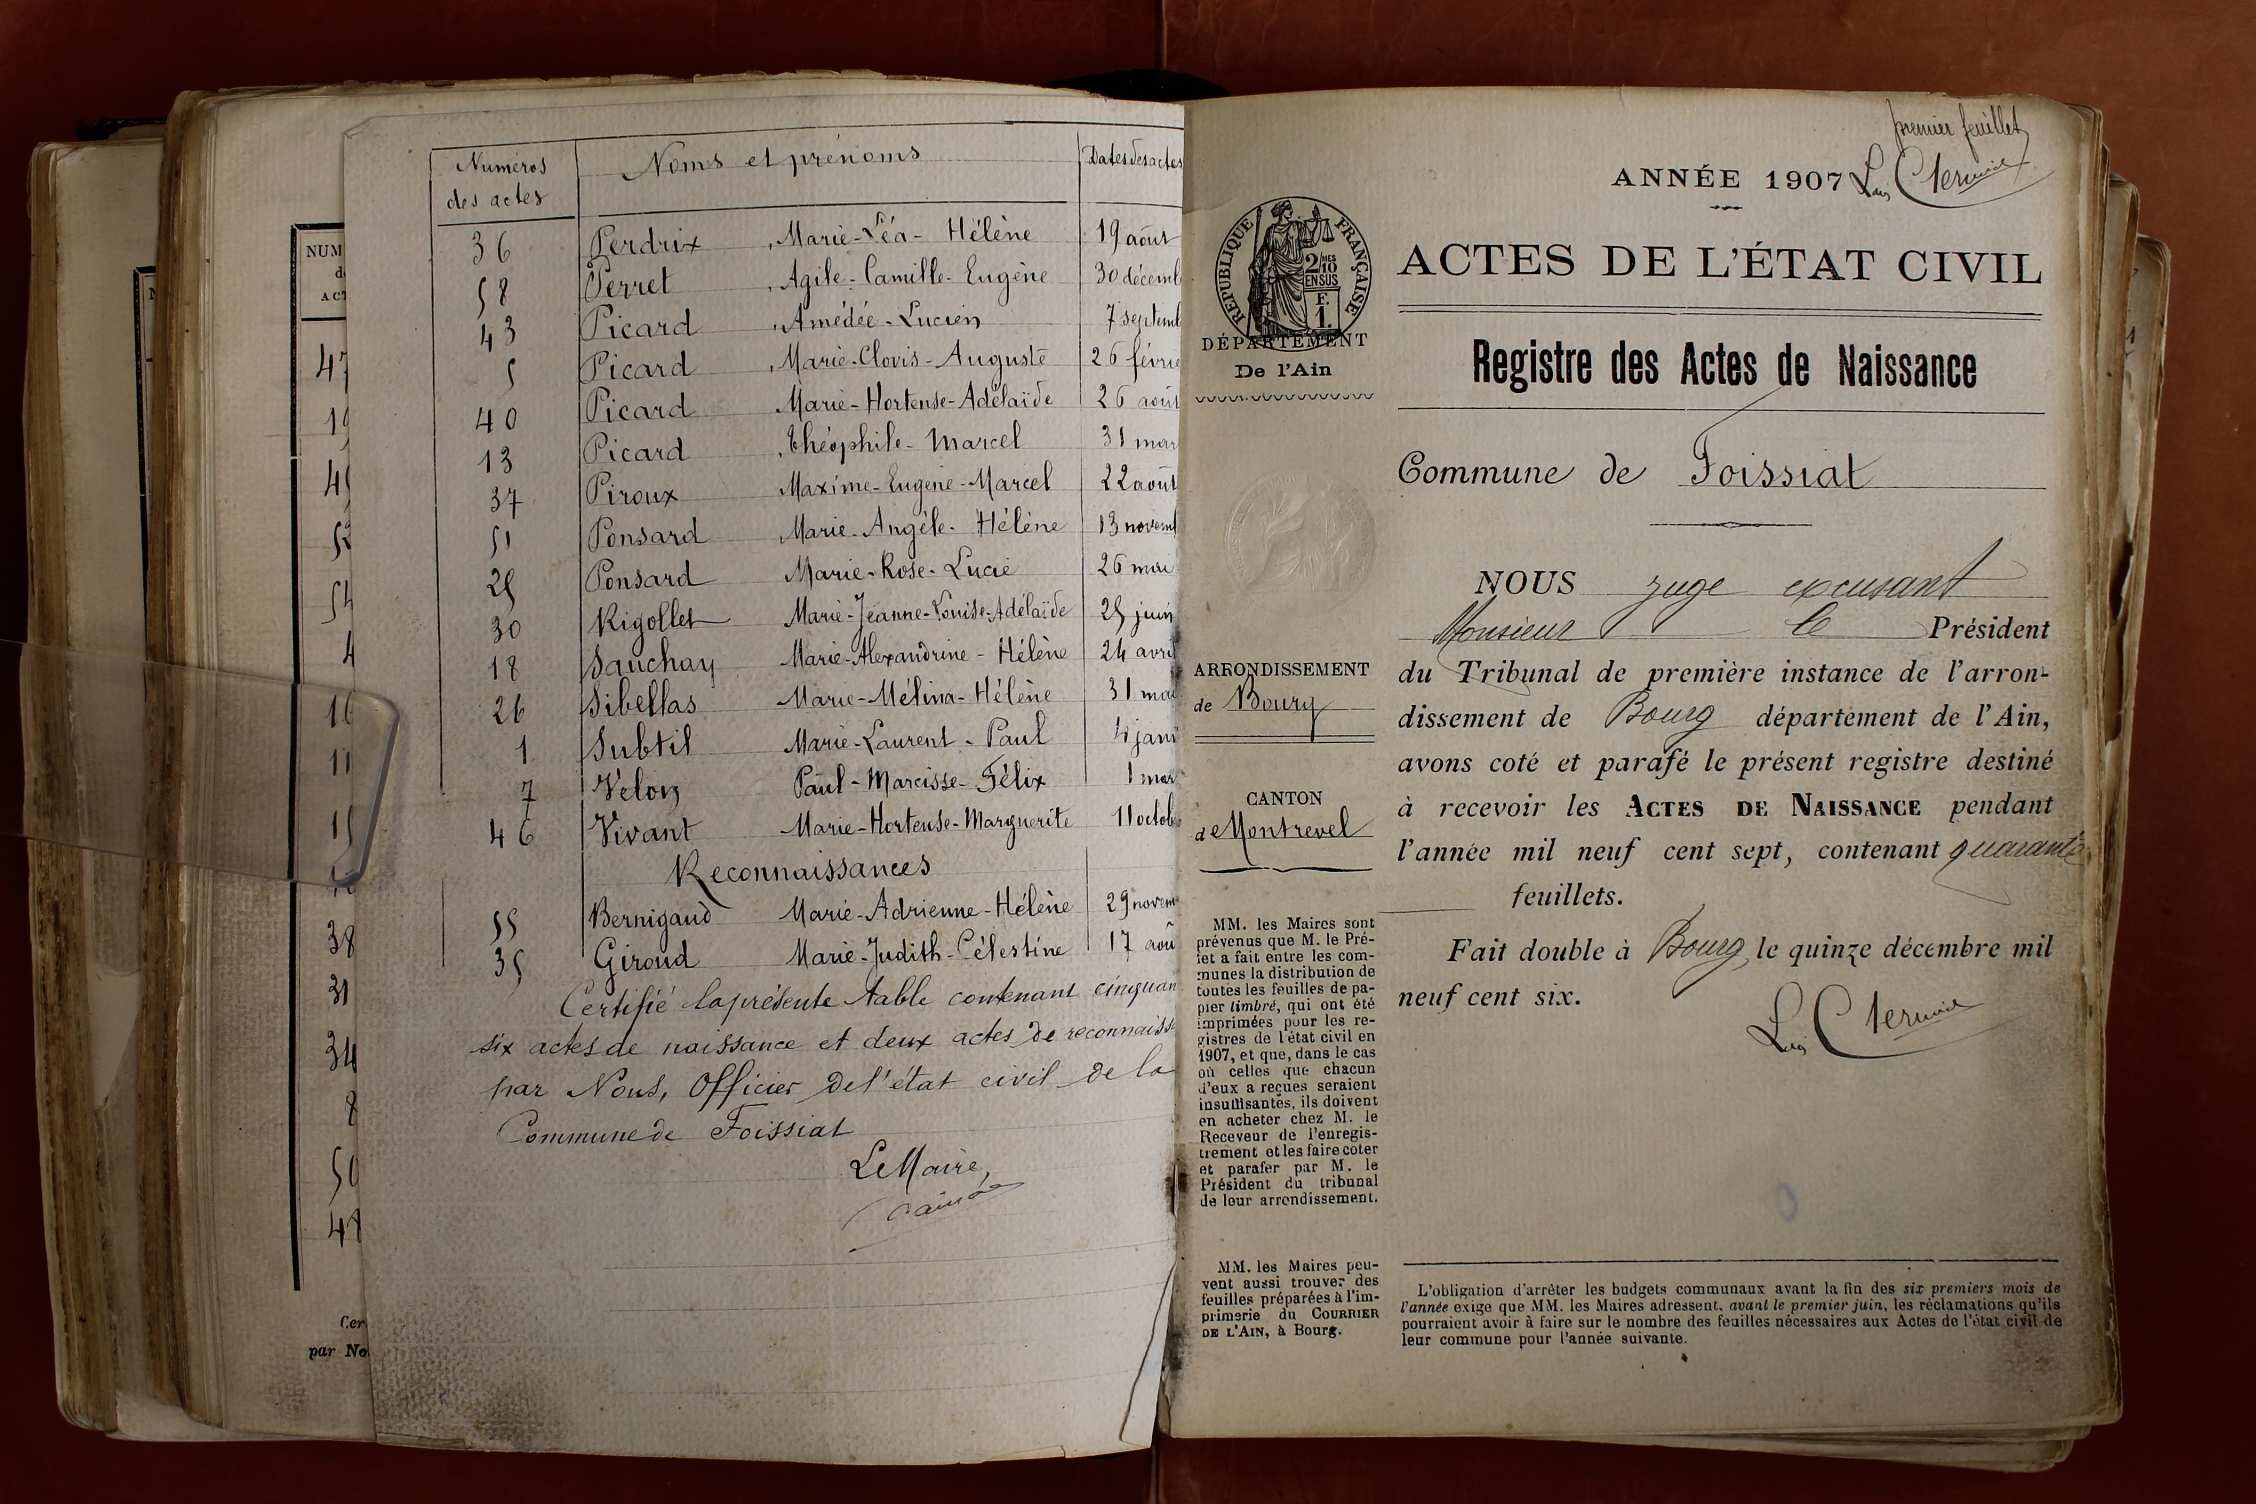 NUM
de
ACT
47
19
4
52
54
4
16
11
15
38
31
34
8
50
48
Cer
par No
Numéros
des actes
Noms et prénoms
Dates des actes
36 Perdrix Marie-Léa-Hélène 19 août
58 Perret Agile-Camille-Eugène 30 décemb
43 Picard Amédée-Lucien 7 septemb
5 Picard Marie-Clovis-Auguste 26 févrie
40 Picard Marie-Hortense-Adélaïde 26 août
13 Picard Théophile-Marcel 31 mar
37 Piroux Maxime-Eugène-Marcel 22 août
51 Ponsard Marie-Angèle-Hélène 13 novemb
25 Ponsard Marie-Rose-Lucie 26 mai
30 Rigollet Marie-Jeanne-Louise-Adélaïde 25 juin
18 Sauchay Marie-Alexandrine-Hélène 24 avril
26 Sibellas Marie-Mélina-Hélène 31 mai
1 Subtil Marie-Laurent-Paul 4 janv
7 Velon Paul-Marcisse-Félix 1 mar
46 Vivant Marie-Hortense-Marguerite 11 octob
Reconnaissances
55 Bernigaud Marie-Adrienne-Hélène 29 novem
35 Giroud Marie-Judith-Célestine 17 aoû
Certifié la présente table contenant cinquan
six actes de naissance et deux actes de reconnaiss
par Nous, Officier de l'état civil de la
Commune de Foissiat
Le Maire,
premier feuillet
ANNÉE 1907
ACTES DE L'ÉTAT CIVIL
RÉPUBLIQUE FRANÇAISE
2/10MES
EN SUS
F.
1.
DÉPARTEMENT
De l'Ain
Registre des Actes de Naissance
Commune de Foissiat
NOUS juge excusant
Monsieur le Président
du Tribunal de première instance de l'arron-
dissement de Bourg département de l'Ain,
avons coté et parafé le présent registre destiné
à recevoir les ACTES DE NAISSANCE pendant
l'année mil neuf cent sept, contenant quarante
feuillets.
Fait double à Bourg, le quinze décembre mil
neuf cent six.
ARRONDISSEMENT
de Bourg
CANTON
de Montrevel
MM. les Maires sont
prévenus que M. le Pré-
fet a fait entre les com-
munes la distribution de
toutes les feuilles de pa-
pier timbré, qui ont été
imprimées pour les re-
gistres de l'état civil en
1907, et que, dans le cas
où celles que chacun
d'eux a reçues seraient
insuffisantes, ils doivent
en acheter chez M. le
Receveur de l'enregis-
trement et les faire coter
et parafer par M. le
Président du tribunal
de leur arrondissement.
MM. les Maires peu-
vent aussi trouver des
feuilles préparées à l'im-
primerie du COURRIER
DE L'AIN, à Bourg.
L'obligation d'arrêter les budgets communaux avant la fin des six premiers mois de
l'année exige que MM. les Maires adressent, avant le premier juin, les réclamations qu'ils
pourraient avoir à faire sur le nombre des feuilles nécessaires aux Actes de l'état civil de
leur commune pour l'année suivante.